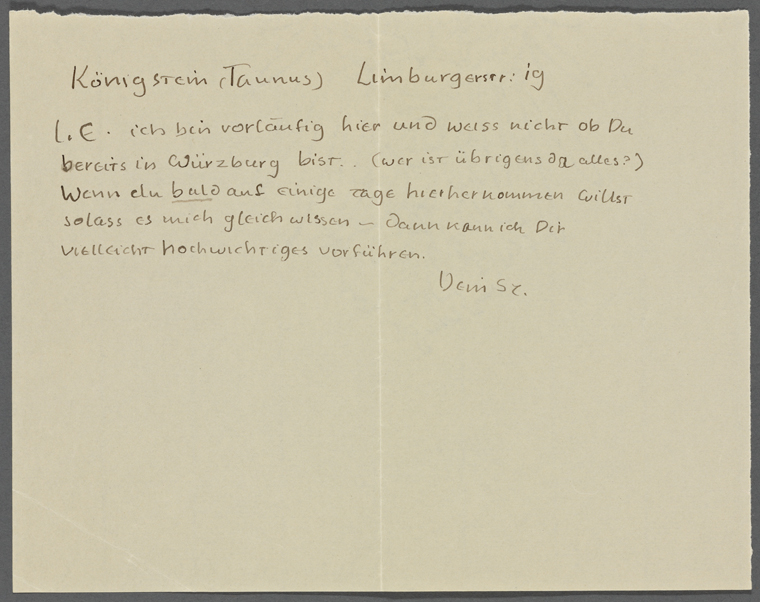 Königstein (Taunus) Limburgerstr: 19
l. E. ich bin vorläufig hier und weiss nicht ob Du
bereits in Würzburg bist.. (wer ist übrigens da alles?)
Wenn du bald auf einige tage hierherkommen willst
solass es mich gleich wissen – dann kann ich Dir
vielleicht hochwichtiges vorführen.
Dein St.